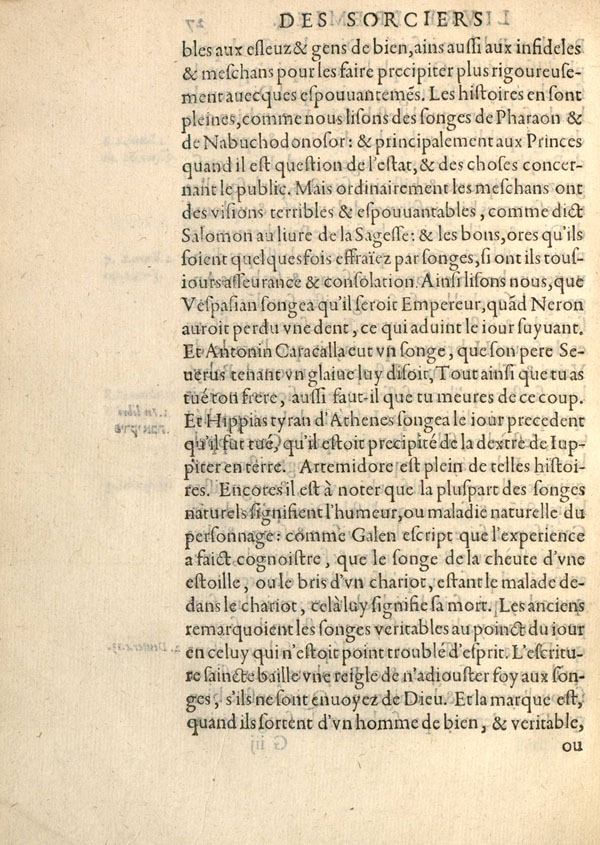 DES SORCIERS
bles aux esleuz & gens de bien, ains aussi aux infideles
& meschans pour les faire precipiter plus rigoureuse-
ment auecques espouuantemēs. Les histoires en sont
pleines, comme nous lisons des songes de Pharaon &
de Nabuchodonosor: & principalement aux Princes
quand il est question de l'estat, & des choses concer-
nant le public. Mais ordinairement les meschans ont
des visions terribles & espouuantables, comme dict
Salomon au liure de la Sagesse: & les bons, ores qu'ils
soient quelquesfois effraïez par songes, si ont ils tous-
iours asseurance & consolation. Ainsi lisons nous, que
Vespasian songea qu'il seroit Empereur, quād Neron
auroit perdu vne dent, ce qui aduint le iour suyuant.
Et Antonin Caracalla eut vn songe, que son pere Se-
uerus tenant vn glaiue luy disoit, Tout ainsi que tu as
tué ton frere, aussi faut-il que tu meures de ce coup.
Et Hippias tyran d'Athenes songea le iour precedent
qu'il fut tué, qu'il estoit precipité de la dextre de Iup-
piter en terre. Artemidore est plein de telles histoi-
res. Encores il est à noter que la pluspart des songes
naturels signifient l'humeur, ou maladie naturelle du
personnage: comme Galen escript que l'experience
a faict cognoistre, que le songe de la cheute d'vne
estoille, ou le bris d'vn chariot, estant le malade de-
dans le chariot, celà luy signifie sa mort. Les anciens
remarquoient les songes veritables au poinct du iour
en celuy qui n'estoit point troublé d'esprit. L'escritu-
re saincte baille vne reigle de n'adiouster foy aux son-
ges, s'ils ne sont enuoyez de Dieu. Et la marque est,
quand ils sortent d'vn homme de bien, & veritable,
ou